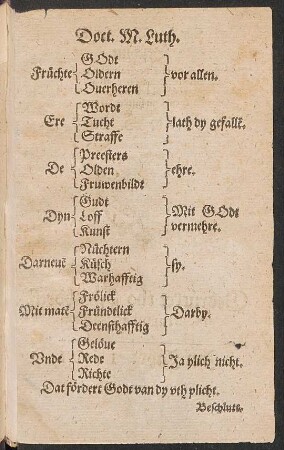 Doct. M. Luth.
Früchte { GOdt
Oldern
Ouerheren } vor allen.
Ere { Wordt
Tucht
Straffe } lath dy gefallē.
De { Preesters
Olden
Fruwenbildt } ehre.
Dyn { Gudt
Loff
Kunst } Mit GOdt
vermehre.
Darneuē { Nüchtern
Küsch
Warhafftig } sy.
Mit matē { Frölick
Fründtlick
Deensthafftig } Darby.
Vnde { Gelöue
Rede
Richte } Ja ylich nicht.
Dat fördert Godt van dy vth plicht.
Beschluts.